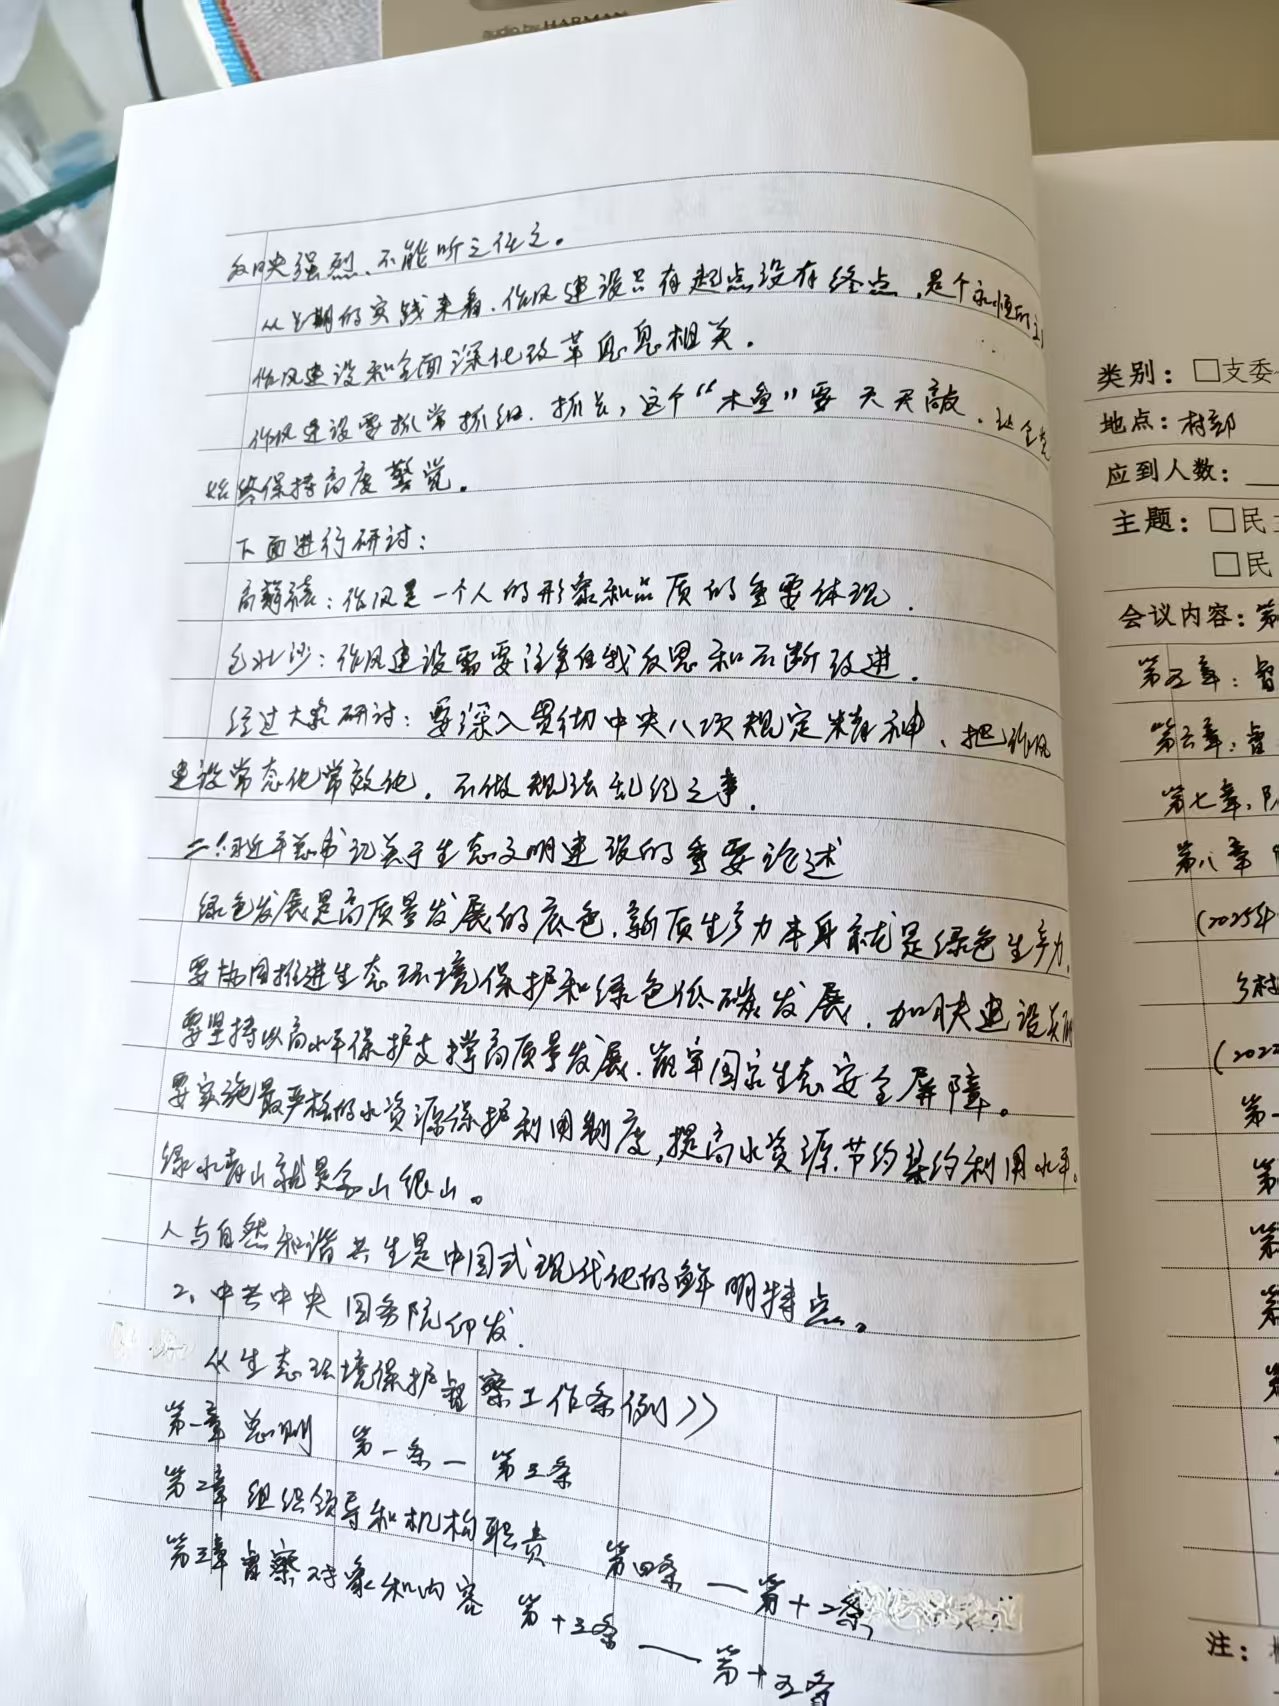 audio by HARMAN
反映强烈、不能听之任之。
从长期的实践来看，作风建设只有起点没有终点，是个永恒的
作风建设和全面深化改革息息相关。
作风建设要抓常抓细、抓长，这个“木鱼”要天天敲，
始终保持高度警觉。
下面进行研讨：
作风是一个人的形象和品质的重要体现。
作风建设需要注重自我反思和不断改进。
经过大家研讨：要深入贯彻中央八项规定精神、把作风
建设常态化常效化，不做规法乱纪之事。
二、习近平总书记关于生态文明建设的重要论述
绿色发展是高质量发展的底色，新质生产力本身就是绿色生产力，
要协同推进生态环境保护和绿色低碳发展，加快建设美丽
要坚持以高水平保护支撑高质量发展，筑牢国家生态安全屏障。
要实施最严格的水资源保护利用制度，提高水资源节约集约利用水平。
绿水青山就是金山银山。
人与自然和谐共生是中国式现代化的鲜明特点。
2、中共中央国务院印发
《生态环境保护督察工作条例》
第一章 总则 第一条— 第三条
第二章 组织领导和机构职责 第四条 — 第十二条
第三章 督察对象和内容 第十三条 — 第十五条
类别：□支委
地点：村部
应到人数：
主题：□民
□民
会议内容：第
第五章：督
第六章：督
第七章：
第八章
(2025年
乡村
(2022
第一
第
第
第
注：